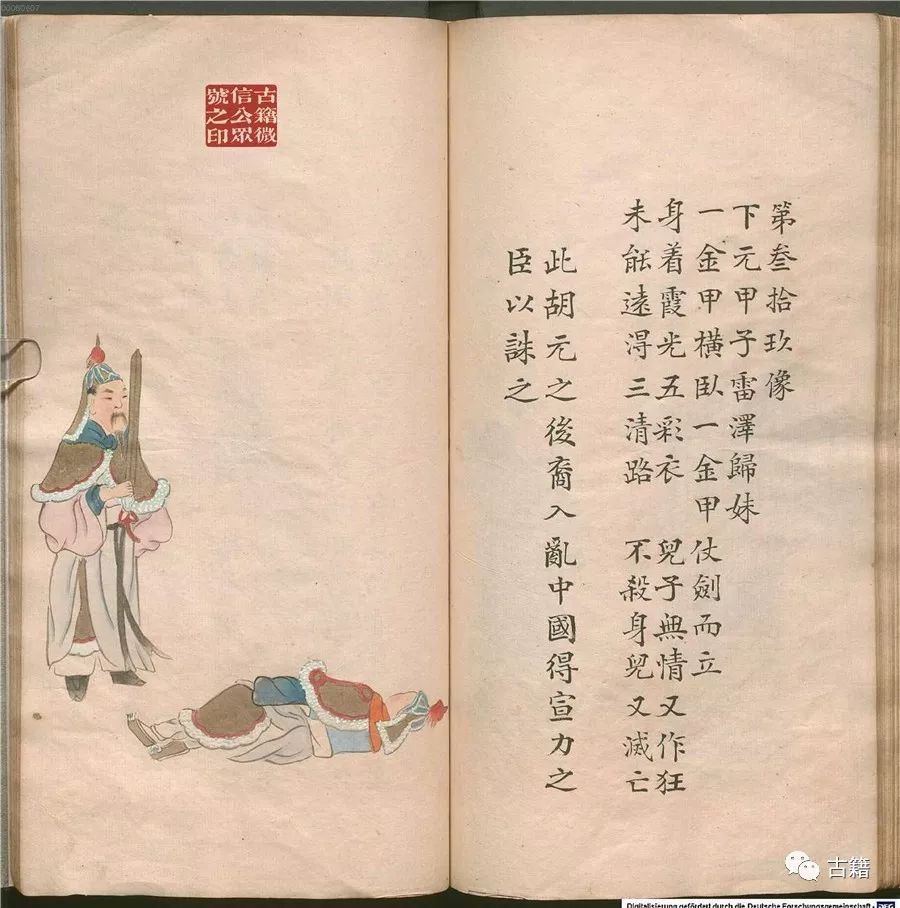 00060607
第叁拾玖像
下元甲子雷澤歸妹
一金甲橫臥一金甲仗劍而立
身着霞光五彩衣 兒子無情又作狂
未能遠淂三清路 不殺身兒又滅亡
此胡元之後裔入亂中國得宣力之
臣以誅之
古籍微
信公眾
號之印
古籍
Digitalisierung gefördert durch die Deutsche Forschungsgemeinschaft